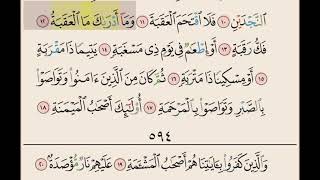 ٱلنَّجْدَيْنِ ١٠ فَلَا ٱقْتَحَمَ ٱلْعَقَبَةَ ١١ وَمَآ أَدْرَىٰكَ مَا ٱلْعَقَبَةُ ١٢
فَكُّ رَقَبَةٍ ١٣ أَوْ إِطْعَٰمٌ فِى يَوْمٍ ذِى مَسْغَبَةٍ ١٤ يَتِيمًا ذَا مَقْرَبَةٍ
١٥ أَوْ مِسْكِينًا ذَا مَتْرَبَةٍ ١٦ ثُمَّ كَانَ مِنَ ٱلَّذِينَ ءَامَنُوا۟ وَتَوَاصَوْا۟
بِٱلصَّبْرِ وَتَوَاصَوْا۟ بِٱلْمَرْحَمَةِ ١٧ أُو۟لَٰٓئِكَ أَصْحَٰبُ ٱلْمَيْمَنَةِ ١٨
٥٩٤
وَٱلَّذِينَ كَفَرُوا۟ بِـَٔايَٰتِنَا هُمْ أَصْحَٰبُ ٱلْمَشْـَٔمَةِ ١٩ عَلَيْهِمْ نَارٌ مُّؤْصَدَةٌۢ ٢٠